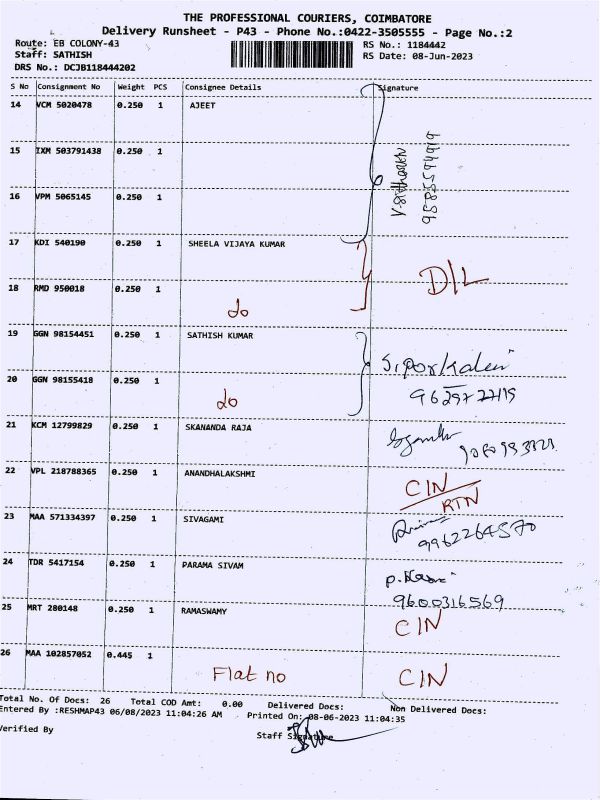 THE PROFESSIONAL COURIERS, COIMBATORE
Delivery Runsheet - P43 - Phone No.:0422-3505555 - Page No.:2
Route: EB COLONY-43 RS No.: 1184442
Staff: SATHISH RS Date: 08-Jun-2023
DRS No.: DCJB118444202
S No Consignment No Weight PCS Consignee Details Signature
14 VCM 5020478 0.250 1 AJEET
15 IXM 503791438 0.250 1
16 VPM 5065145 0.250 1
17 KDI 540190 0.250 1 SHEELA VIJAYA KUMAR
D/L
18 RMD 950018 0.250 1
do
19 GGN 98154451 0.250 1 SATHISH KUMAR
20 GGN 98155418 0.250 1
do
21 KCM 12799829 0.250 1 SKANANDA RAJA
22 VPL 218788365 0.250 1 ANANDHALAKSHMI
CIN
RTN
23 MAA 571334397 0.250 1 SIVAGAMI
9962264570
24 TDR 5417154 0.250 1 PARAMA SIVAM
9600316569
25 MRT 280148 0.250 1 RAMASWAMY
CIN
26 MAA 102857052 0.445 1
Flat no CIN
Total No. Of Docs: 26 Total COD Amt: 0.00 Delivered Docs: Non Delivered Docs:
Entered By :RESHMAP43 06/08/2023 11:04:26 AM Printed On: 08-06-2023 11:04:35
Verified By Staff Signature